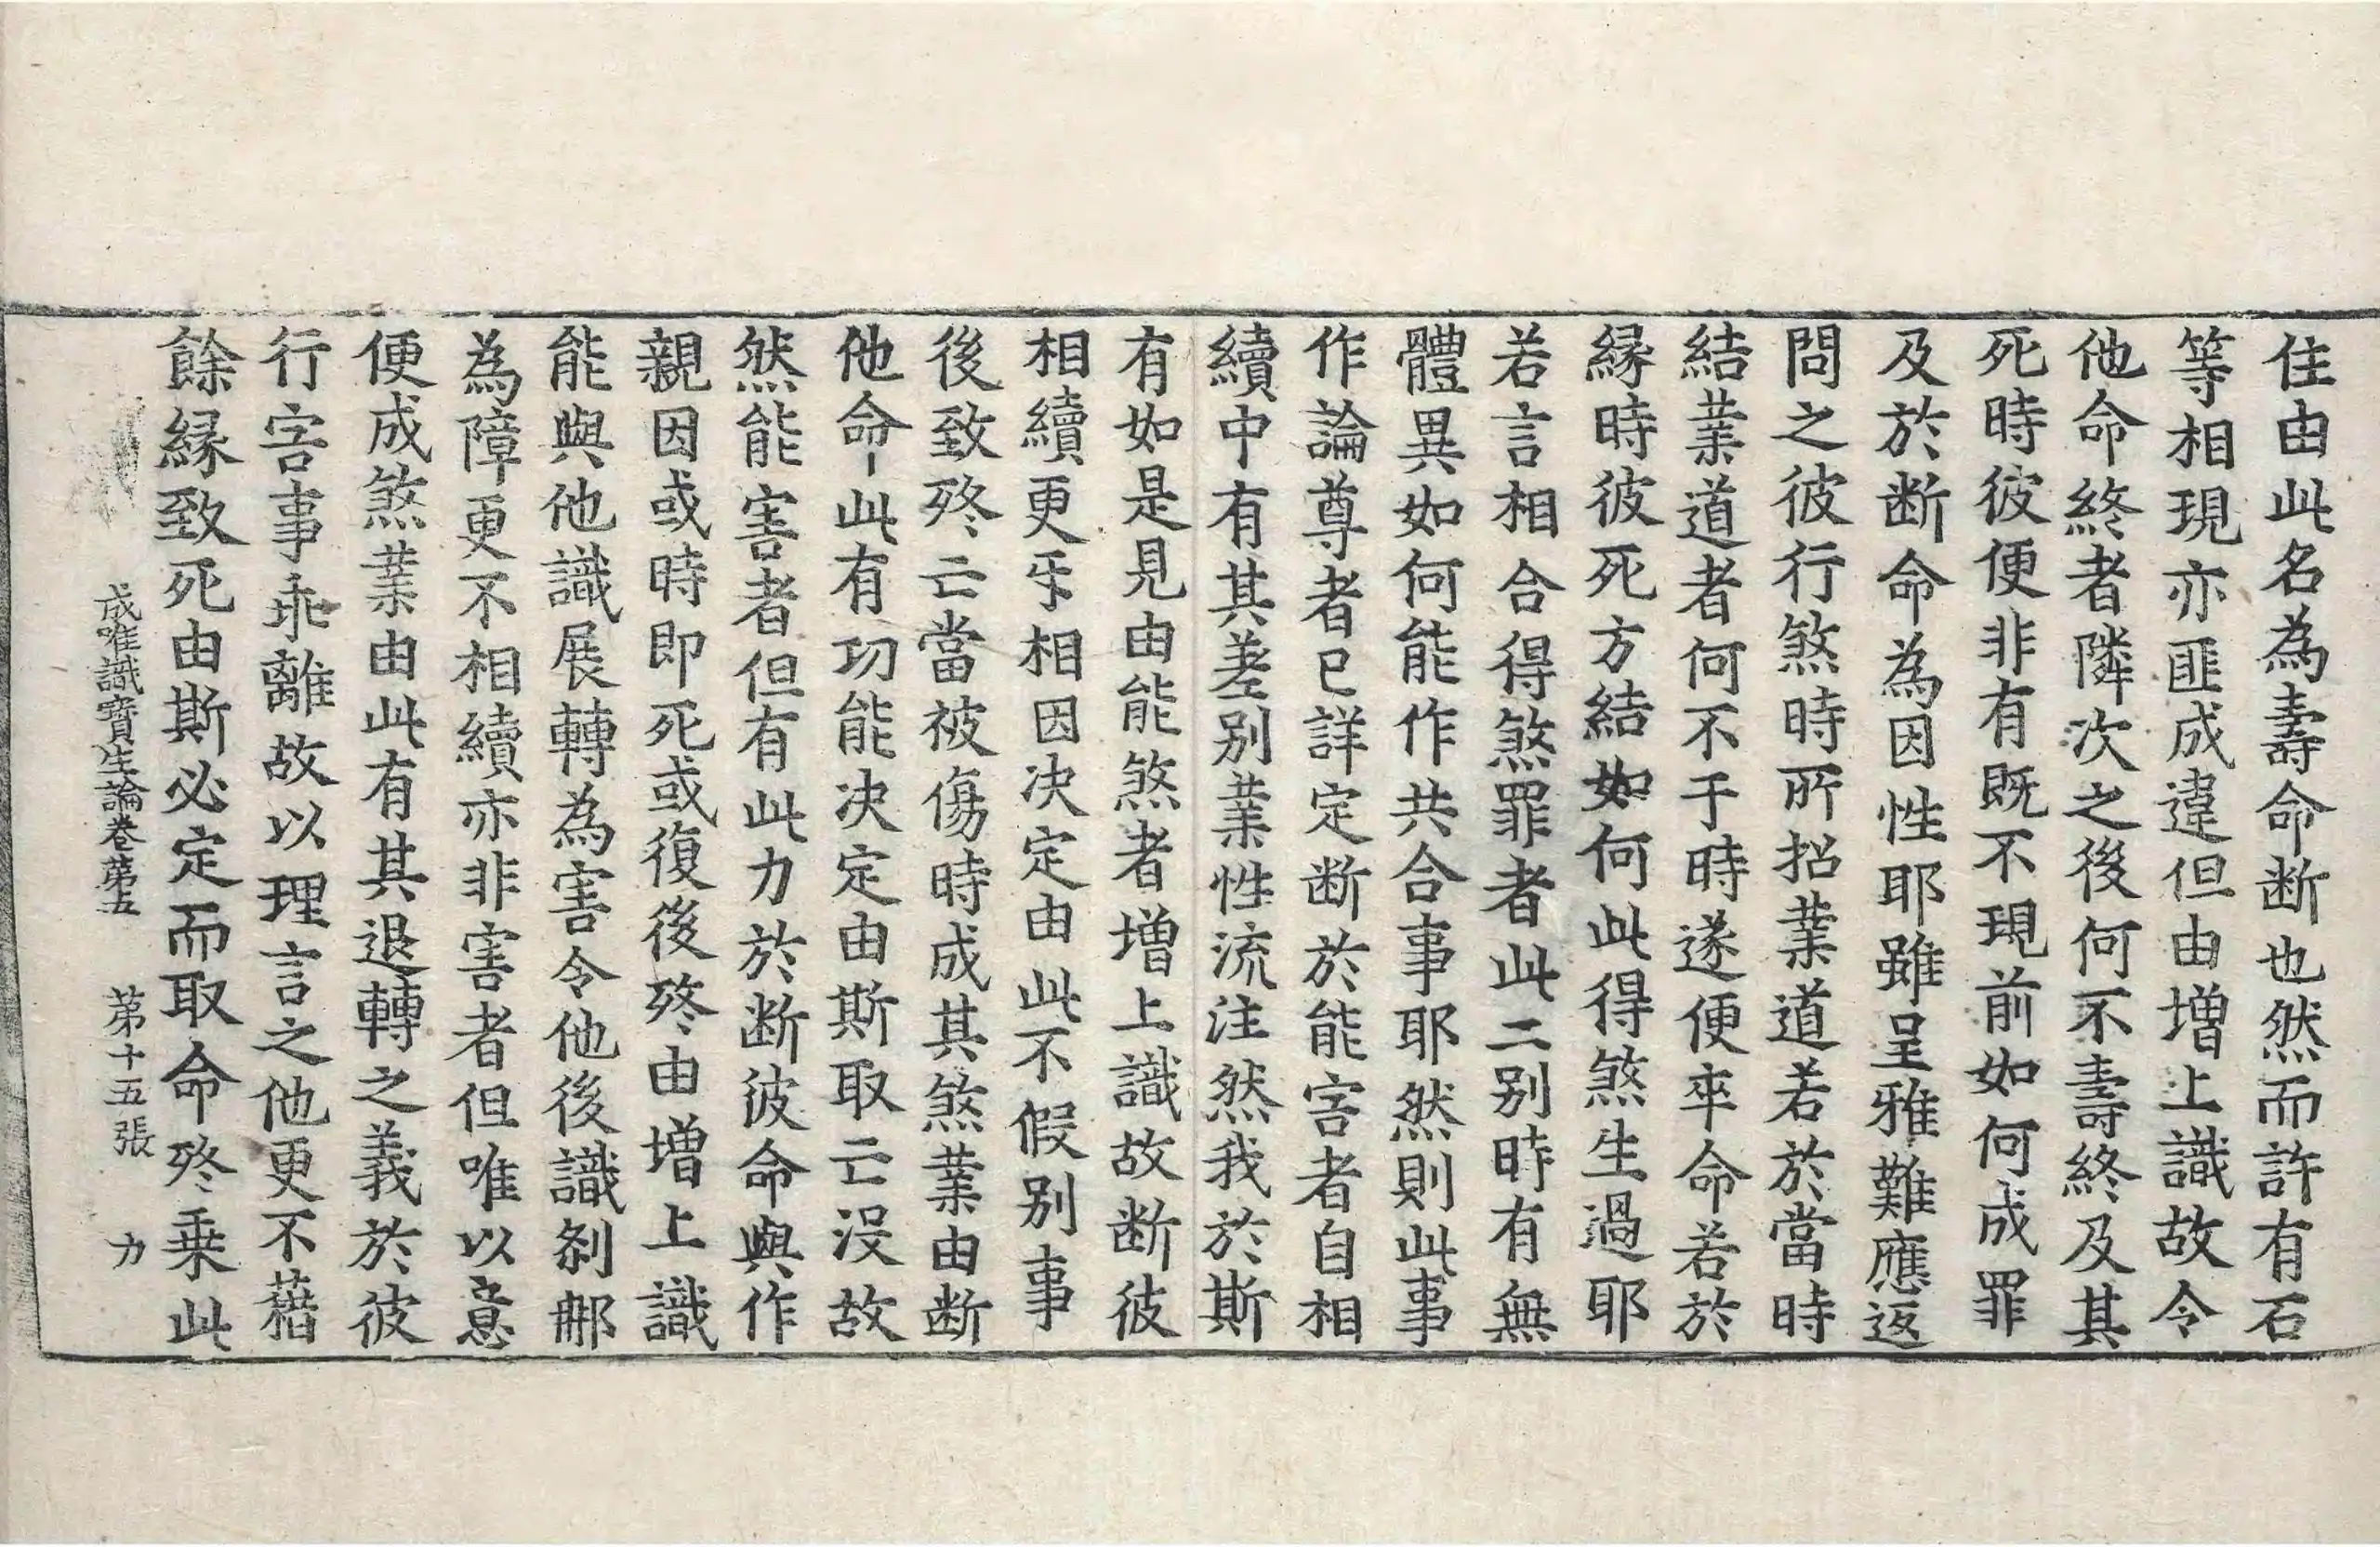 住由此名為壽命断也然而許有石
等相現亦匪成違但由増上識故令
他命終者隣次之後何不壽終及其
死時彼便非有既不現前如何成罪
及於断命為因性耶雖呈雅難應返
問之彼行煞時所招業道若於當時
結業道者何不于時遂便卒命若於
縁時彼死方結如何此得煞生過耶
若言相合得煞罪者此二别時有無
體異如何能作共合事耶然則此事
作論尊者已詳定断於能害者自相
續中有其差别業性流注然我於斯
有如是見由能煞者増上識故断彼
相續更㸦相因决定由此不假别事
後致殁亡當被傷時成其煞業由断
他命此有功能决定由斯取亡没故
然能害者但有此力於断彼命與作
親因或時即死或復後殁由増上識
能與他識展轉為害令他後識刹那
為障更不相續亦非害者但唯以意
便成煞業由此有其退轉之義於彼
行害事乖離故以理言之他更不藉
餘縁致死由斯必定而取命殁乗此
成唯識寶生論卷第五 第十五張 力